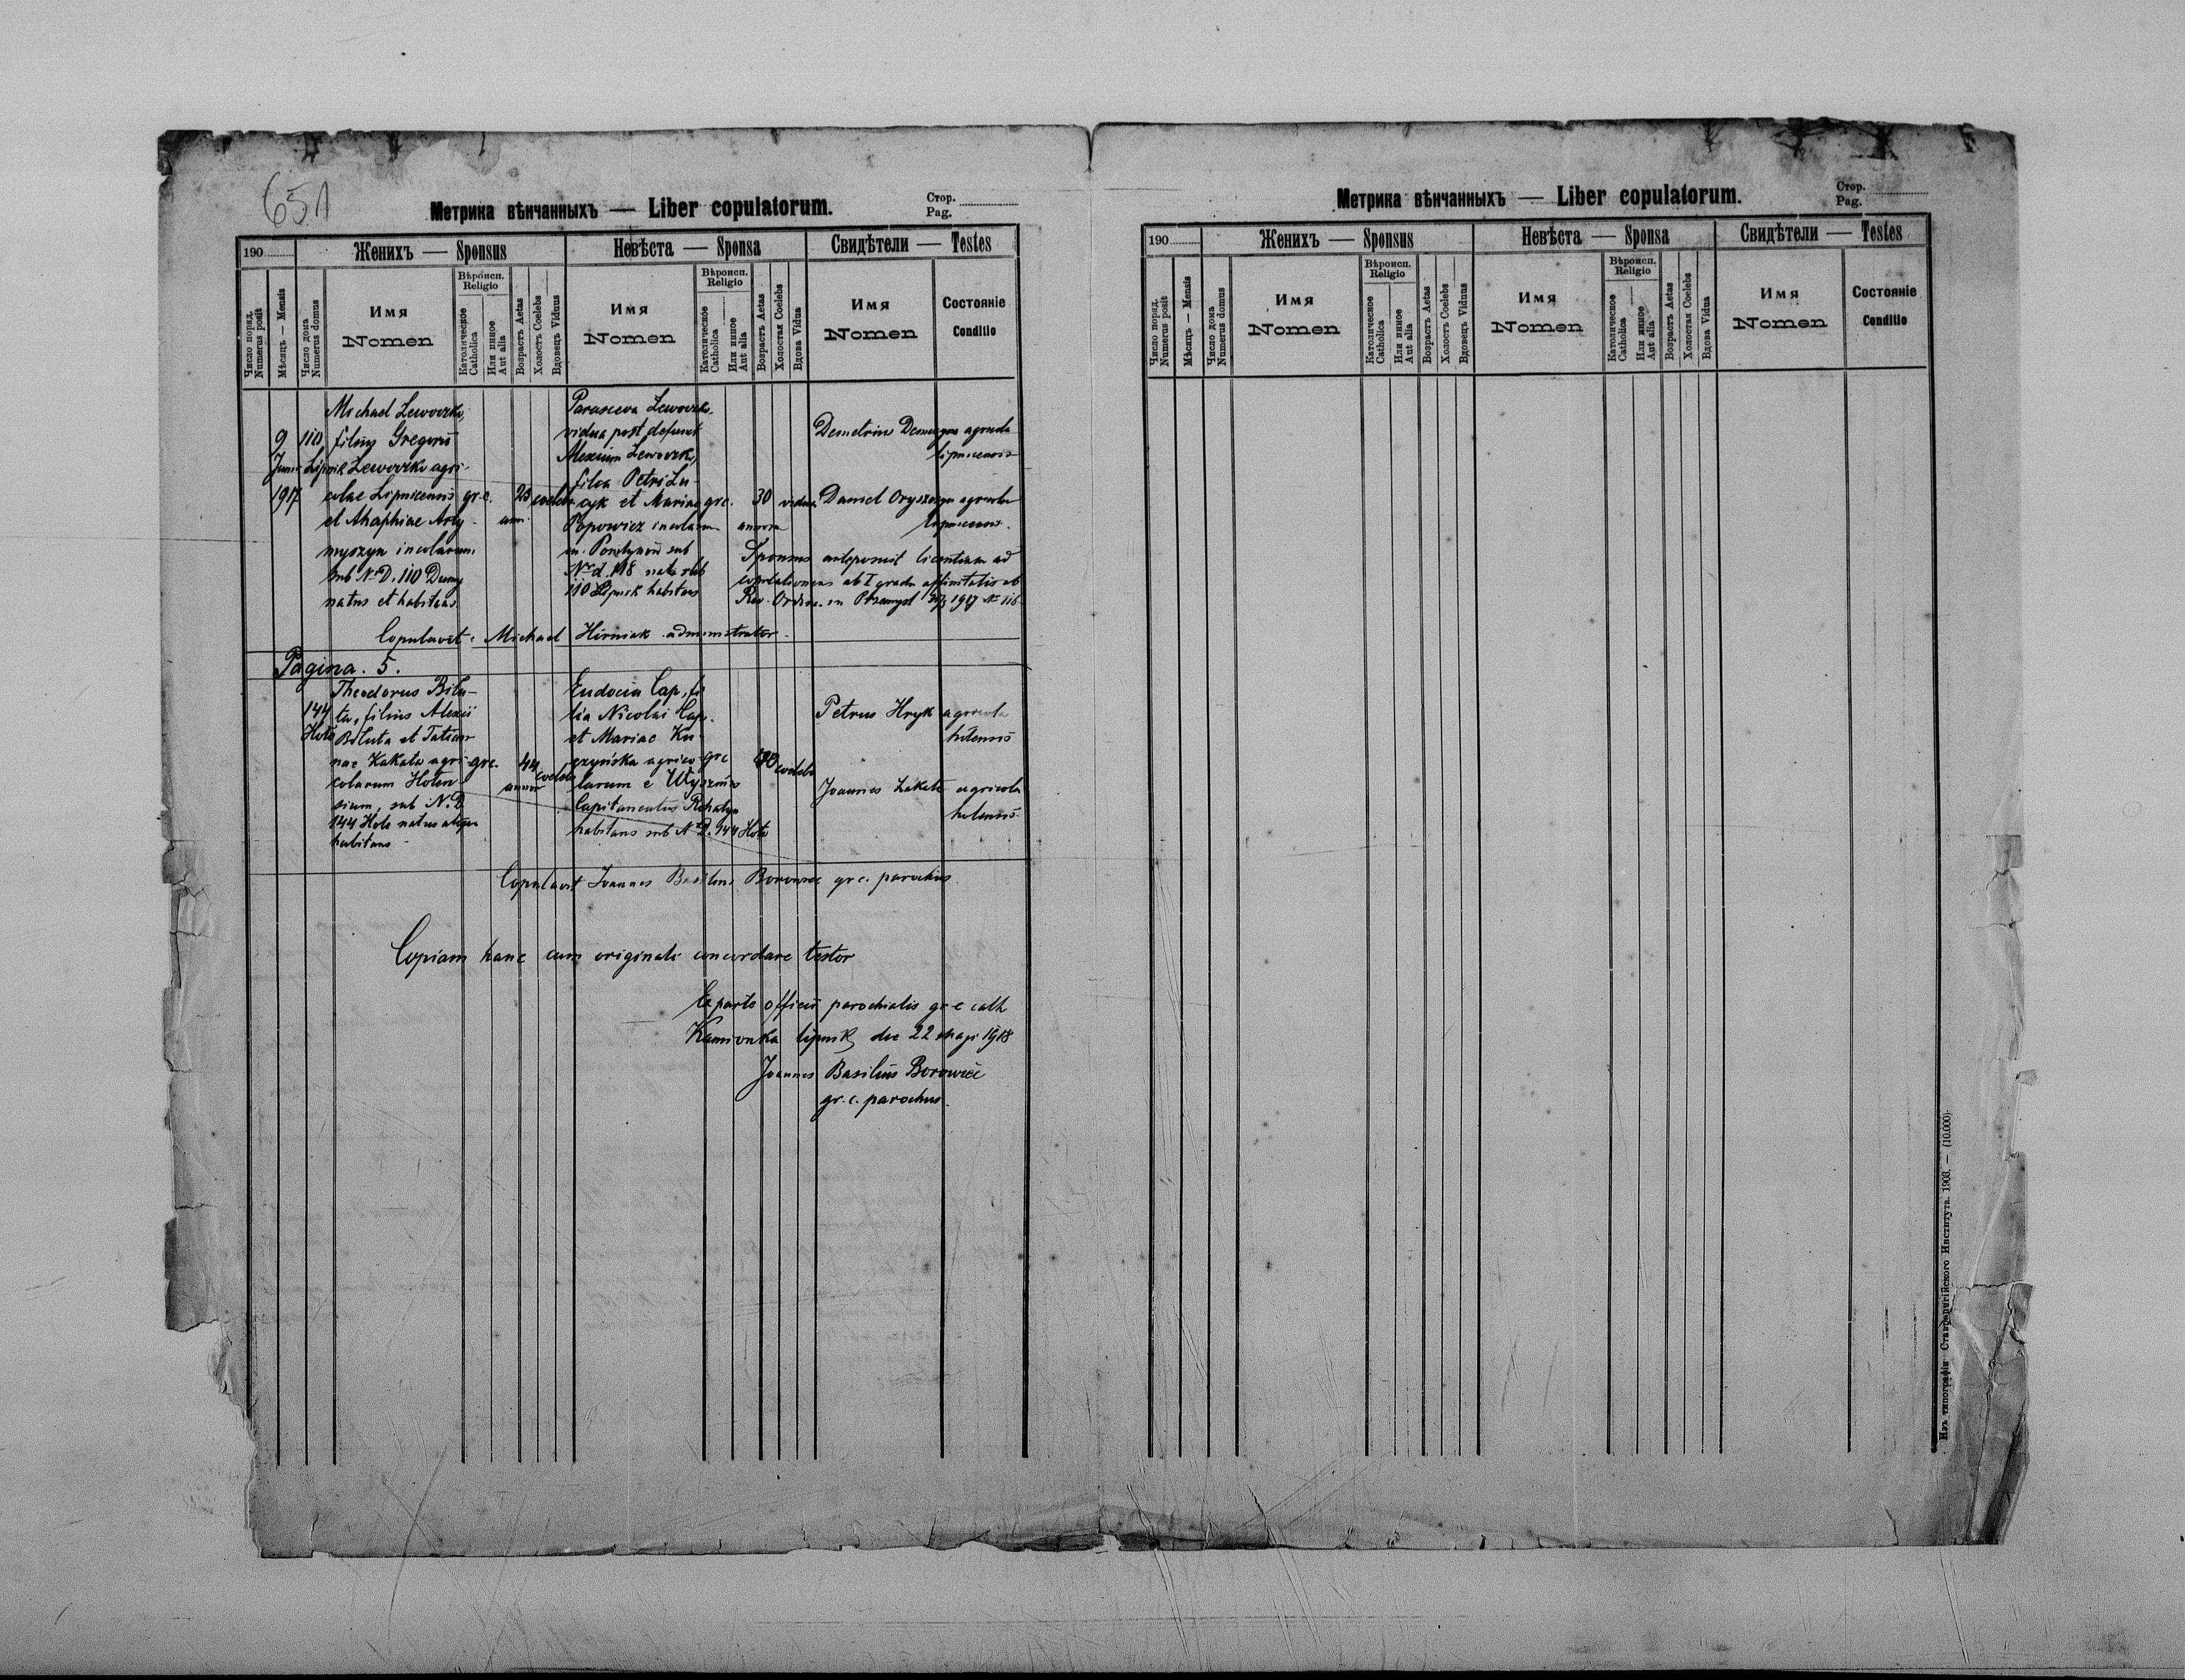 651
Метрика вѣнчанныхъ — Liber copulatorum.
Стор.
Pag.
190
Женихъ — Sponsus
Невѣста — Sponsa
Свидѣтели — Testes
Число поряд.
Numerus posit
Мѣсяцъ — Mensis
Число дома
Numerus domus
Имя
Nomen
Вѣроисп.
Religio
Католическое
Catholica
Или инное
Aut alia
Возрастъ Aetas
Холостъ Coelebs
Вдовецъ Viduus
Имя
Nomen
Вѣроисп.
Religio
Католическое
Catholica
Или инное
Aut alia
Возрастъ Aetas
Холостая Coelebs
Вдова Vidua
Имя
Nomen
Состояніе
Conditio
9
Junii
1917
110
Lipnik
Michael Lewoczko,
filius Gregorii
Lewoczko agri-
colae Lipnicensis
et Ahaphiae Arty-
myszyn incolarum
sub Nr D. 110 Dumy
natus et habitans
gr. c.
25
ann.
coelebs
Parasceva Lewoczko,
vidua post defunct
Alexium Lewoczko,
filia Petri Lu-
cyk et Mariae
Popowicz incolarum
in
sub
Nr d. 118 nata sub
110 Lipnik habitans
gr c.
30
annorum
vidua
Demetrius
agricola
lipnicensis
Daniel Oryszczyn agricola
lipnicensis.
Sponsus anteposuit licentiam ad
copulationem ab I gradu affinitatis ab
Rev. Ordin. in Przemysl
1917 Nr 116
Copulavit: Michael Hirniak administrator.
Pagina. 5.
144
Hole
Theodorus Bilu-
ta, filius Alexii
Biluta et Tatian-
nae Kakata agri-
colarum Holen-
sium, sub N. D.
144 Hole natus atque
habitans
gr c.
44
annor
coelebs
Eudocia Cap, fi-
lia Nicolai Cap
et Mariae Ku-
czyńska agrico-
larum e
Capitaneatus Rohatyn
habitans sub Nr D. 144 Hole
gr c
40
coelebs
Petrus Hryk agricola
holensis
Joannes Kakata agricola
holensis
Copulavit Joannes Basilius Borowiec gr c. parochus.
Copiam hanc cum originali concordare testor
Ex parte officii parochialis gr c cath
Kamionka lipnik die 22 Maji 1918
Joannes Basilius Borowiec
gr. c. parochus.
Метрика вѣнчанныхъ — Liber copulatorum.
Стор.
Pag.
190
Женихъ — Sponsus
Невѣста — Sponsa
Свидѣтели — Testes
Число поряд.
Numerus posit
Мѣсяцъ — Mensis
Число дома
Numerus domus
Имя
Nomen
Вѣроисп.
Religio
Католическое
Catholica
Или инное
Aut alia
Возрастъ Aetas
Холостъ Coelebs
Вдовецъ Viduus
Имя
Nomen
Вѣроисп.
Religio
Католическое
Catholica
Или инное
Aut alia
Возрастъ Aetas
Холостая Coelebs
Вдова Vidua
Имя
Nomen
Состояніе
Conditio
Изъ типографіи Ставропигійского Института. 1903. — (10.000).